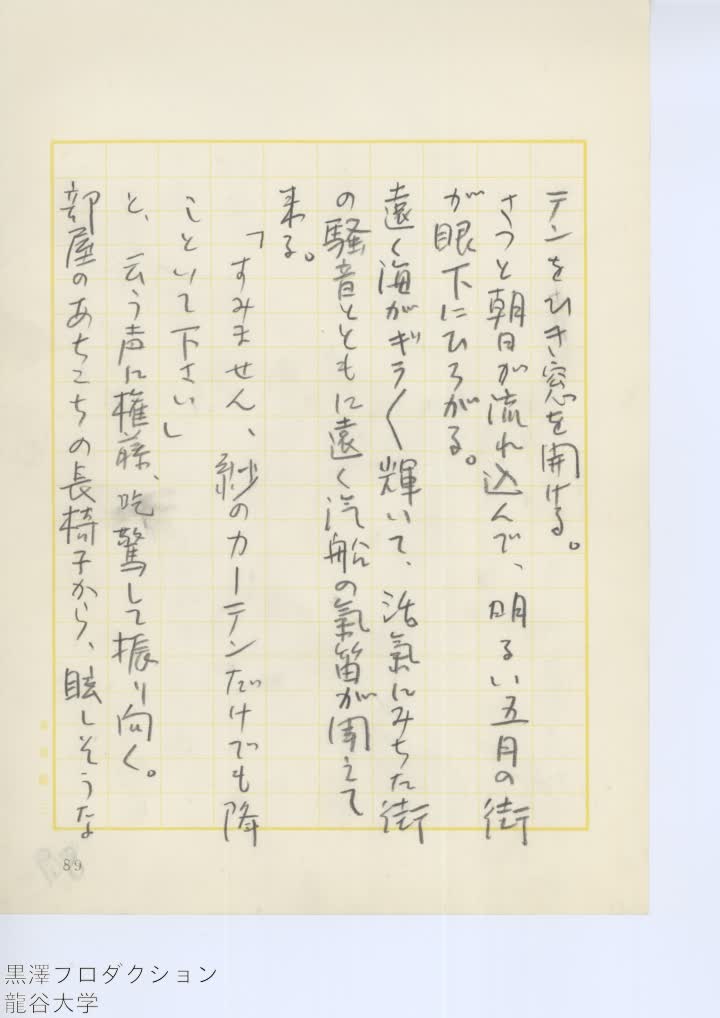 テンをひき窓を開ける。
さつと朝日が流れ込んで、明るい五月の街
が眼下にひろがる。
遠く海がギラ〱輝いて、活氣にみちた街
の騒音とともに遠く汽船の氣笛が聞えて
来る。
「すみません、紗のカーテンだけでも降
しといて下さい」
と、云う声に権藤、吃驚して振り向く。
部屋のあちこちの長椅子から、眩しそうな
89
黒澤プロダクション
龍谷大学